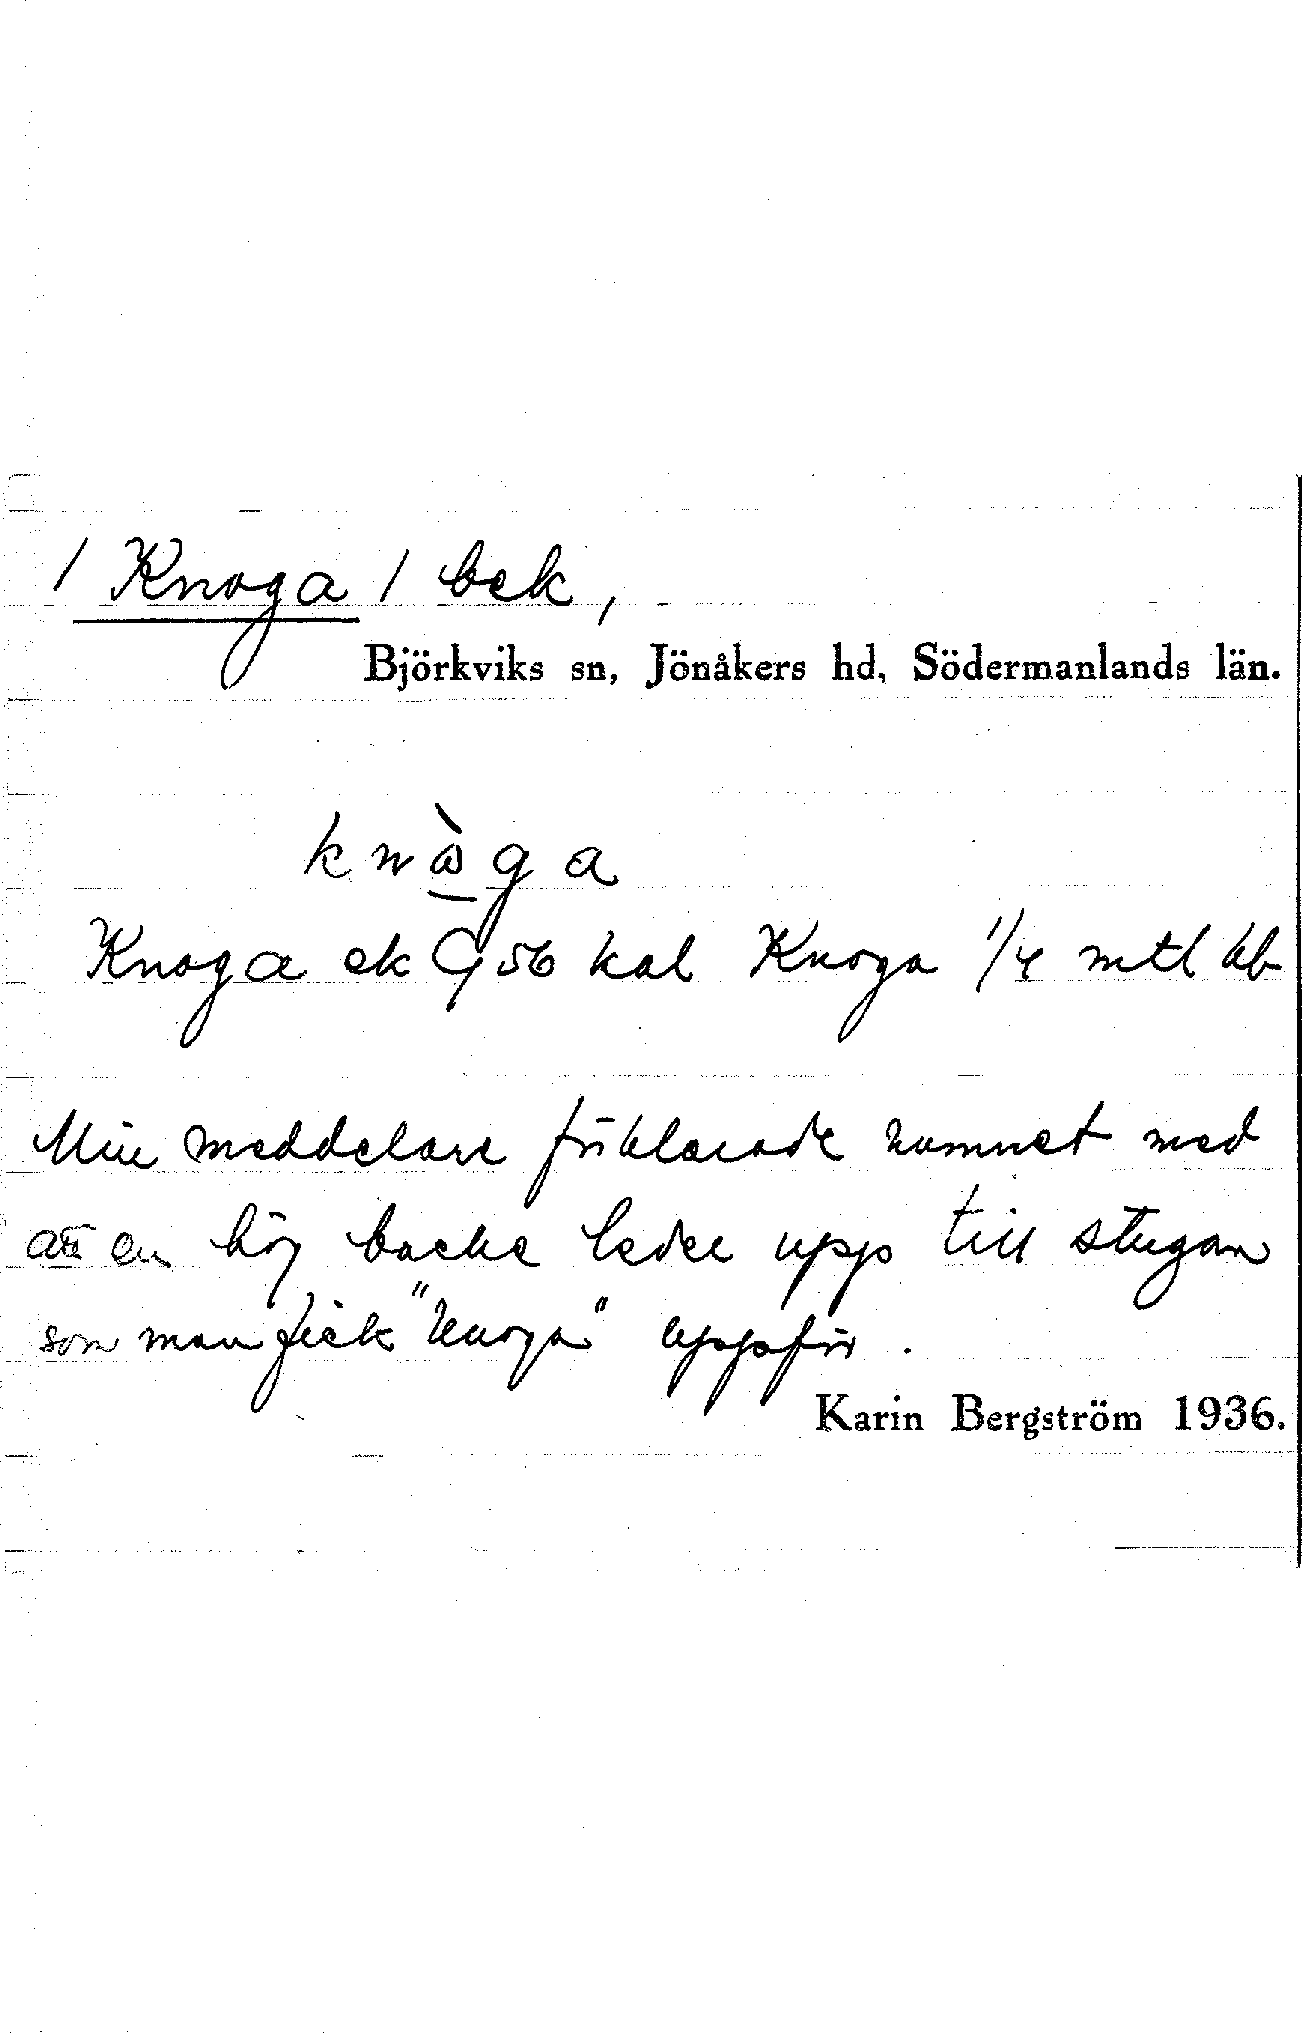 / Knoga / bek,
Björkviks sn, Jönåkers hd, Södermanlands län.
knὼga
Knoga ek G 56 kal Knoga 1/4 mtl kb
Min meddelare förklarade namnet med
att en hög backe leder upp till stugan
som man fick "knoga" uppför.
Karin Bergström 1936.